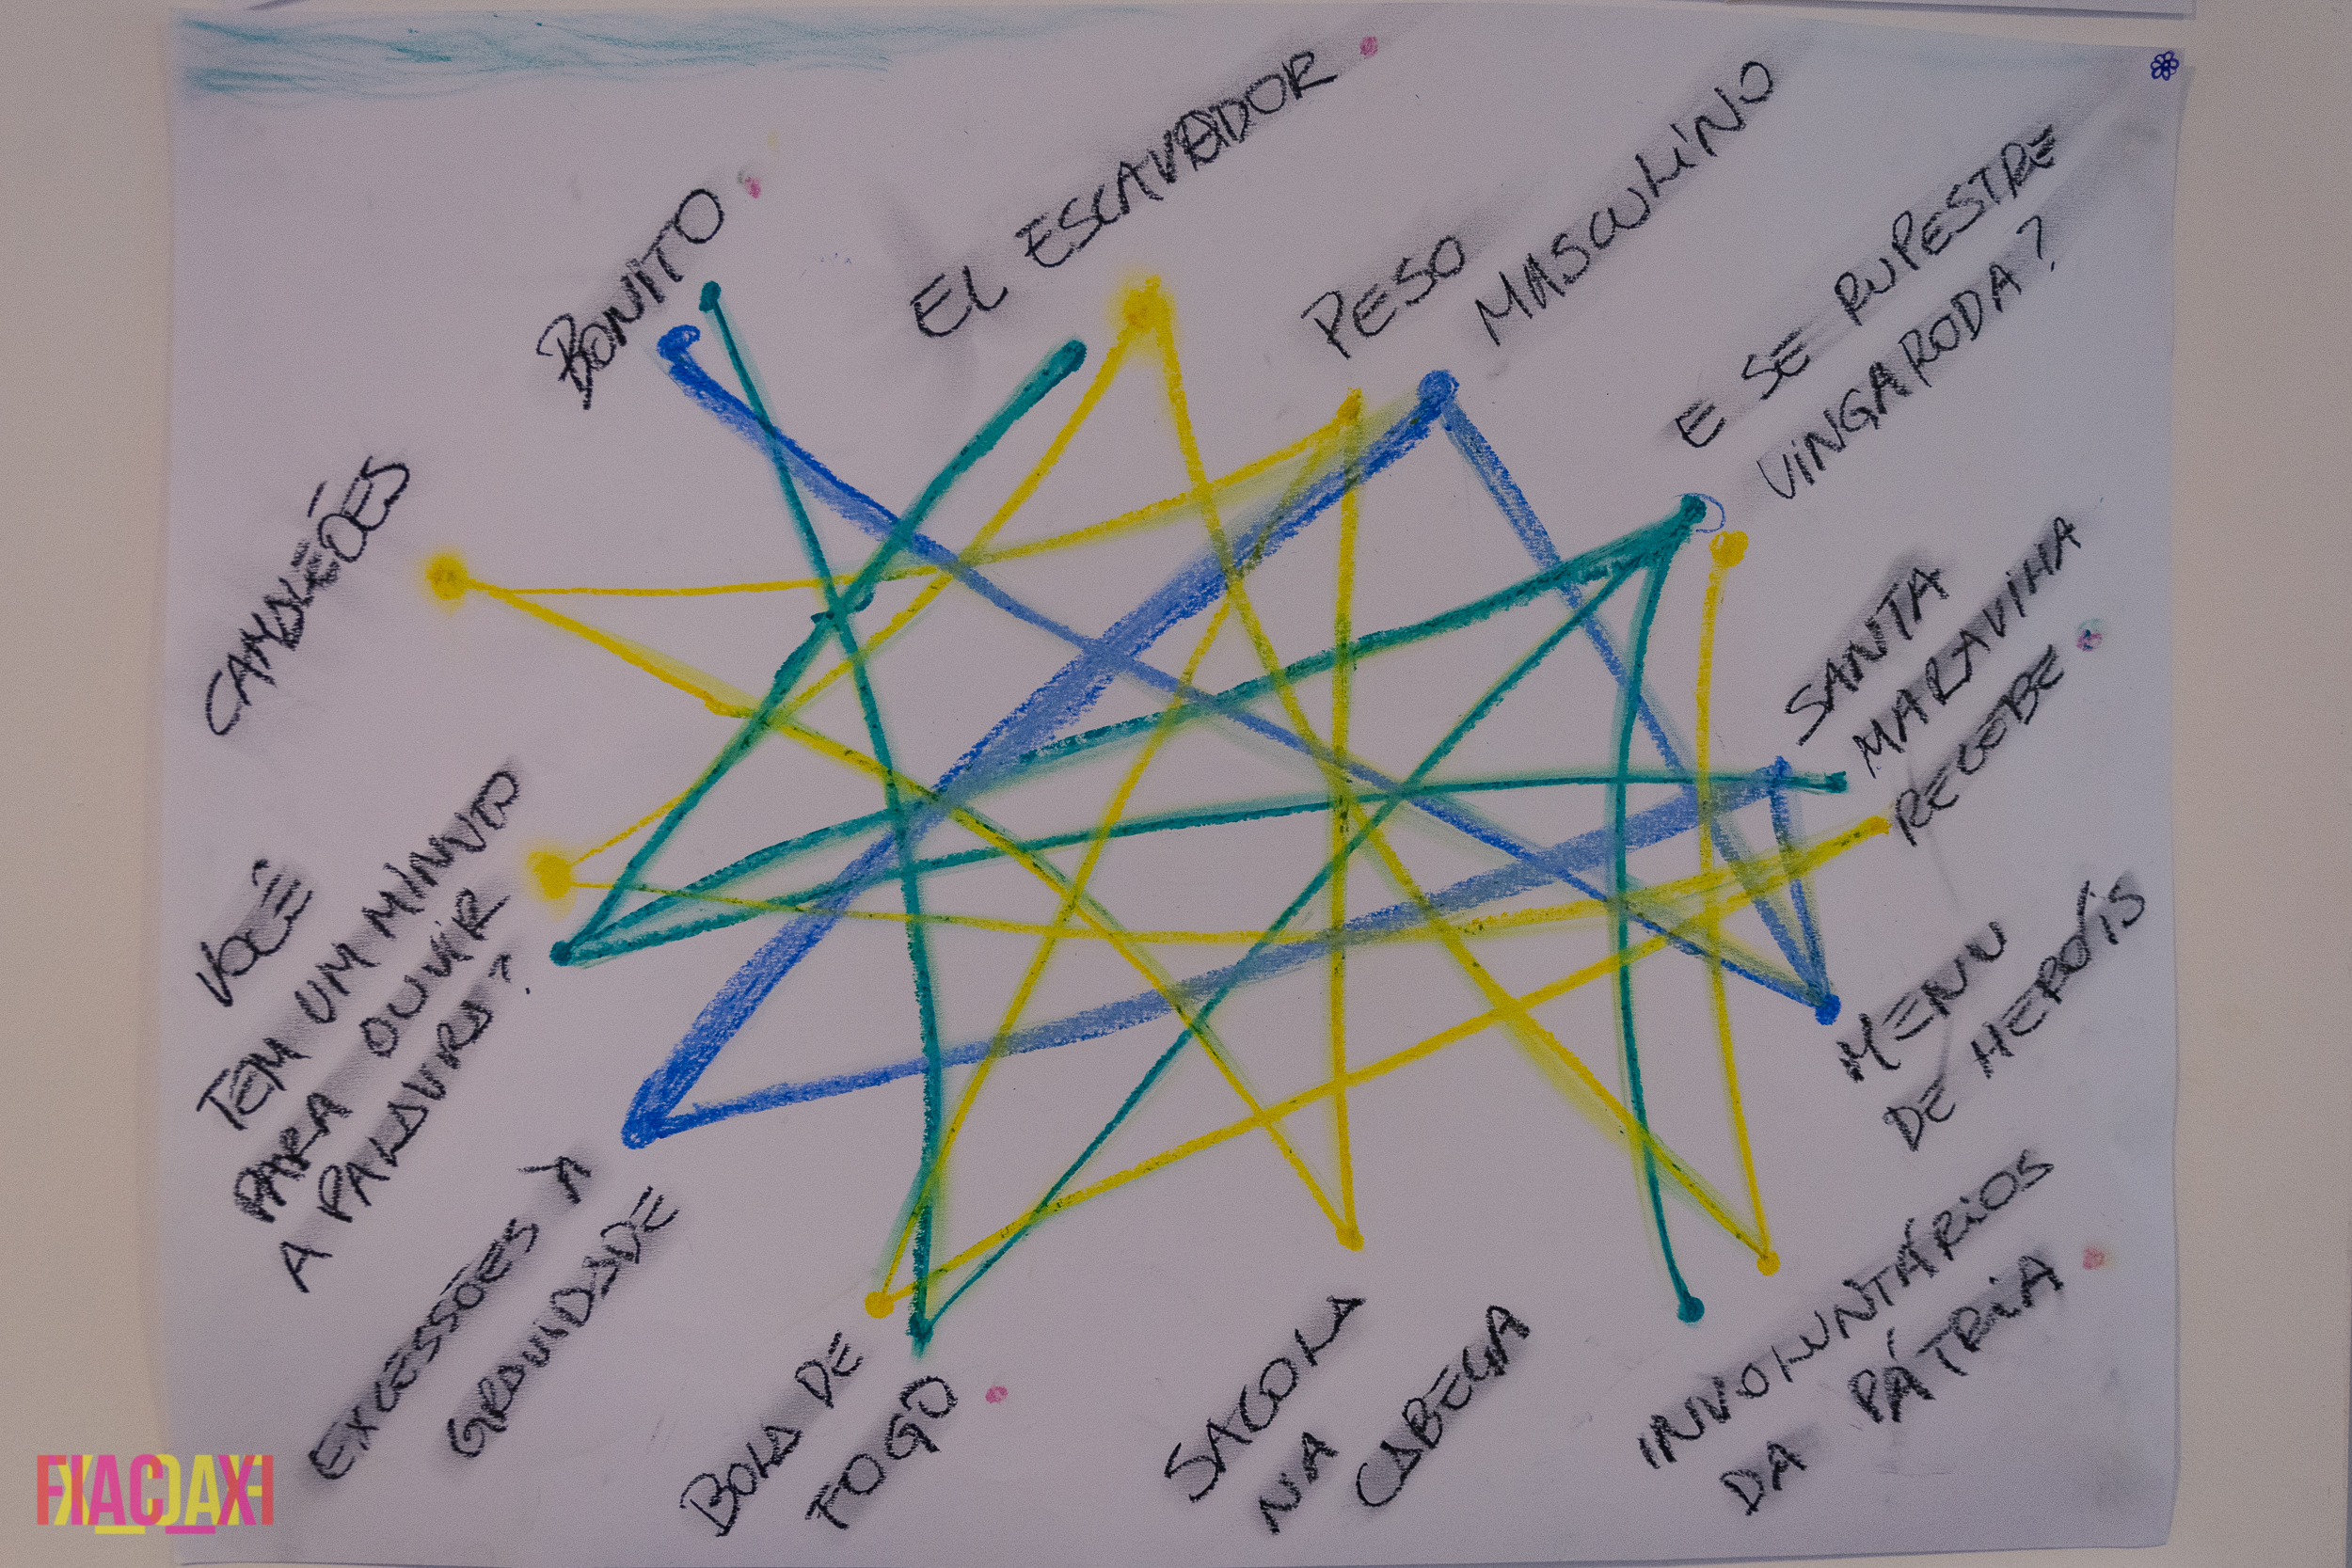 BONITO
EL ESCAVADOR
PESO
MASCULINO
E SE RUPESTRE
VINGARODA?
SANTA
MARAVIHA
RECEBE
MENU
DE HERÓIS
INVOLUNTÁRIOS
DA PÁTRIA
SACOLA
NA
CABEÇA
BOLA DE
FOGO
EXCESSÕES À
GRAVIDADE
VOCÊ
TEM UM MINUTO
PARA OUVIR
A PALAVRA?
CAMALEÕES